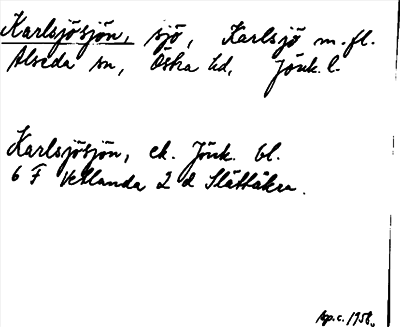 Karlsjösjön, sjö, Karlsjö m.fl.
Alseda sn, Östra hd, Jönk. l.
Karlsjösjön, ek. Jönk. bl.
6 F Vetlanda 2 d Slättåkra.
Op.c. 1958.